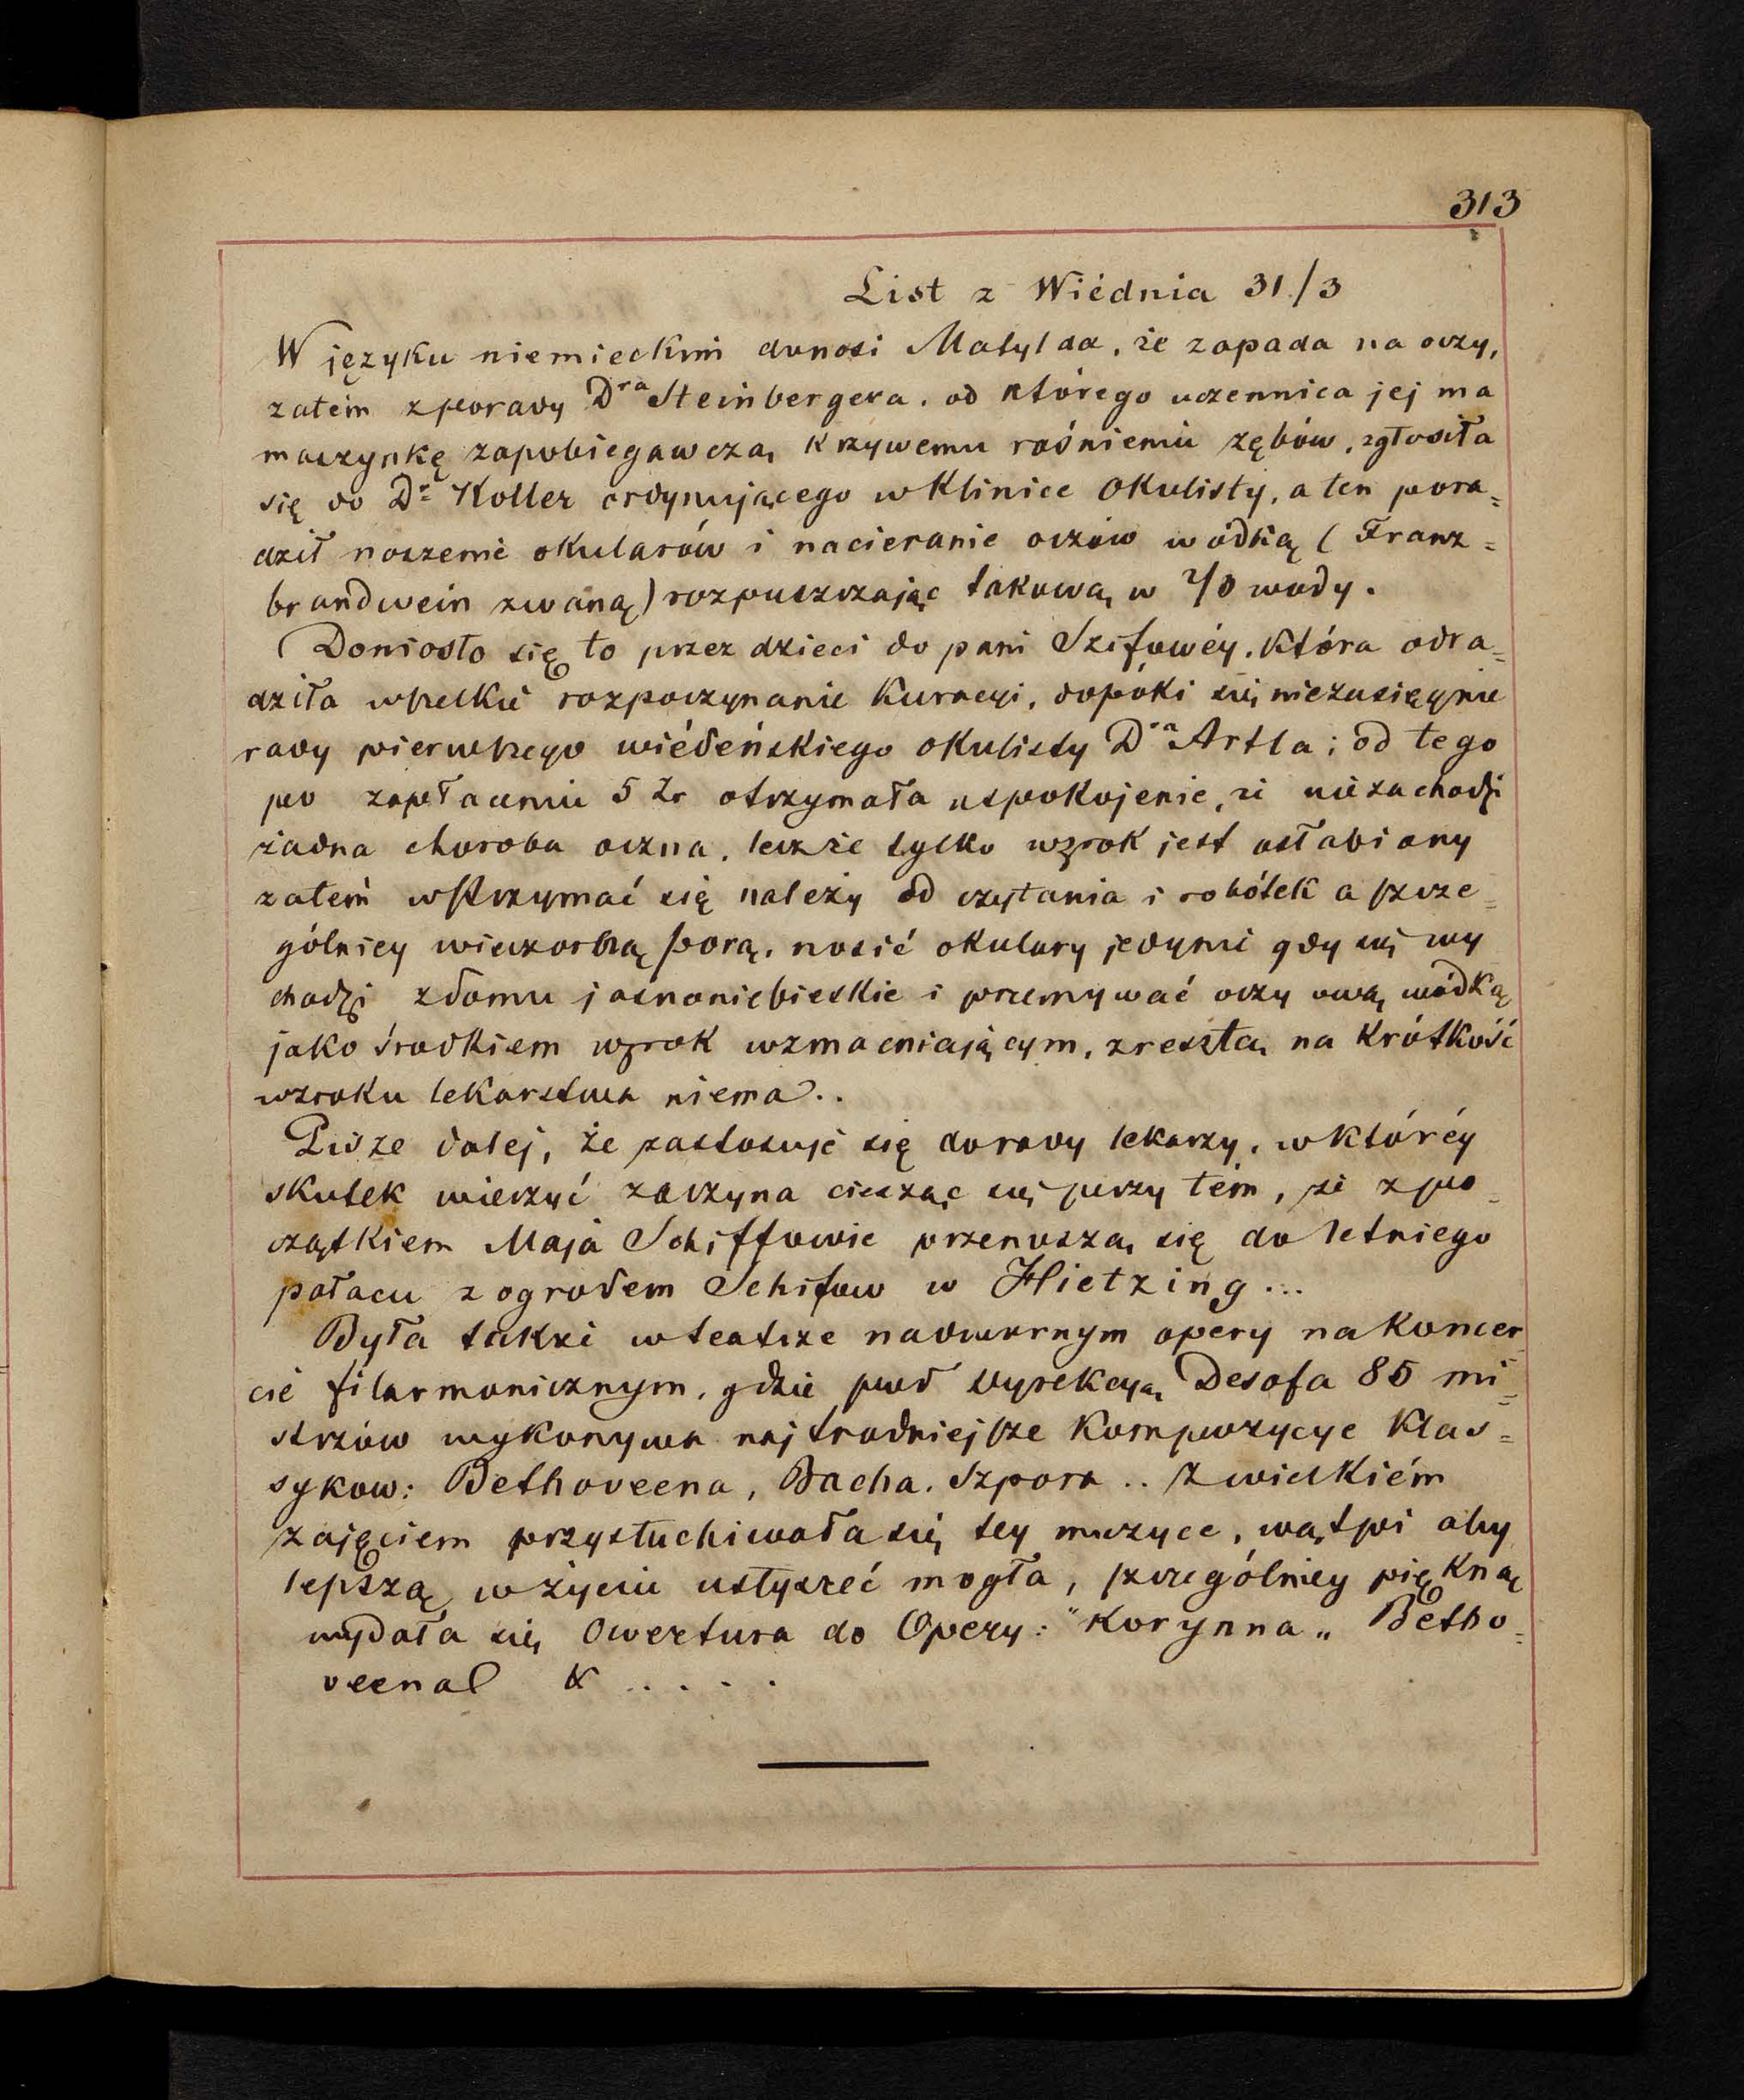 313
List z Wiédnia 31/3
W języku niemieckim donosi Matylda, że zapada na oczy,
zatém z porady Dra Steinbergera, od którego uczennica jej ma
maszynkę zapobiegawczą krzywemu rośnieniu zębów, zgłosiła
się do Dr Koller ordynującego w Klinice Okulisty, a ten pora=
dził noszenie okularów i nacieranie oczów wódką (Franz=
brandwein zwaną) rozpuszczając takową w 2/3 wody.
Doniosło się to przez dzieci do pani Szifowéy, która odra=
dziła wszelkie rozpoczynanie kuracyi, dopóki się niezasięgnie
rady pierwszego wiédeńskiego okulisty Dra Artla; od tego
po zapłaceniu 5 Zr otrzymała uspokojenie, że niezachodzi
żadna choroba oczna, lecz że tylko wzrok jest osłabiony
zatém wstrzymać się należy od czytania i robótek a szcze=
gólniey wieczorną porą, nosić okulary jedynie gdy się wy
chodzi z domu jasnoniebieskie i przemywać oczy ową wódką
jako środkiem wzrok wzmacniającym, zresztą na krótkość
wzroku lekarstwa niema..
Pisze dalej, że zastosuje się do rady lekarzy, w któréy
skutek wierzyć zaczyna ciesząc się przy tém, że z po=
czątkiem Maja Schiffowie przenoszą się do letniego
pałacu z ogrodem Schifow w Hietzing...
Była także w teatrze nadwornym opery na koncer
cie filarmonicznym, gdzie pod dyrekcyą Desofa 85 mi=
strzów wykonywa najtrudniejsze kompozycye klas=
sykow: Bethoveena, Bacha, Szpora .. Z wielkiém
zajęciem przysłuchiwała się tey muzyce, wątpi aby
lepszą w życiu usłyszeć mogła, szczególniey piękną
wydała się Owertura do Opery: "Korynna„ Betho=
veena